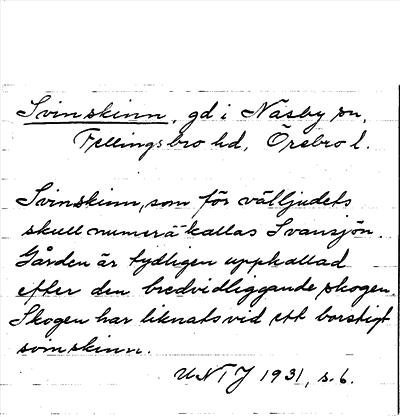 Svinskinn, gd i Näsby sn,
Fellingsbro hd, Örebro l.
Svinskinn, som för välljudets
skull numera kallas Svansjön.
Gården är tydligen uppkallad
efter den bredvidliggande skogen.
Skogen har liknats vid ett borstigt
svinskinn.
UNT J 1931, s. 6.